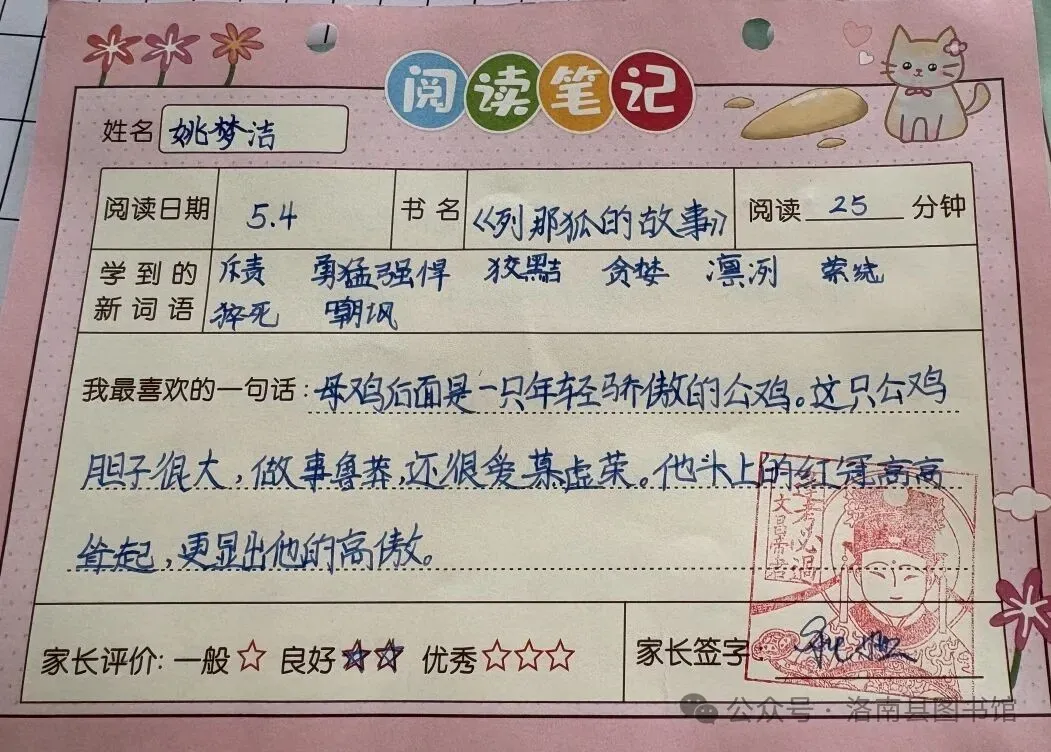 阅读笔记
姓名 姚梦洁
阅读日期 5.4 书名 《列那狐的故事》 阅读 25 分钟
学到的 斥责 勇猛强悍 狡黠 贪婪 凛冽 萦绕
新词语 猝死 嘲讽
我最喜欢的一句话：母鸡后面是一只年轻骄傲的公鸡。这只公鸡
胆子很大，做事鲁莽，还很爱慕虚荣。他头上的红冠高高
耸起，更显出他的高傲。
家长评价: 一般☆ 良好☆☆ 优秀☆☆☆ 家长签字:
公众号·洛南县图书馆